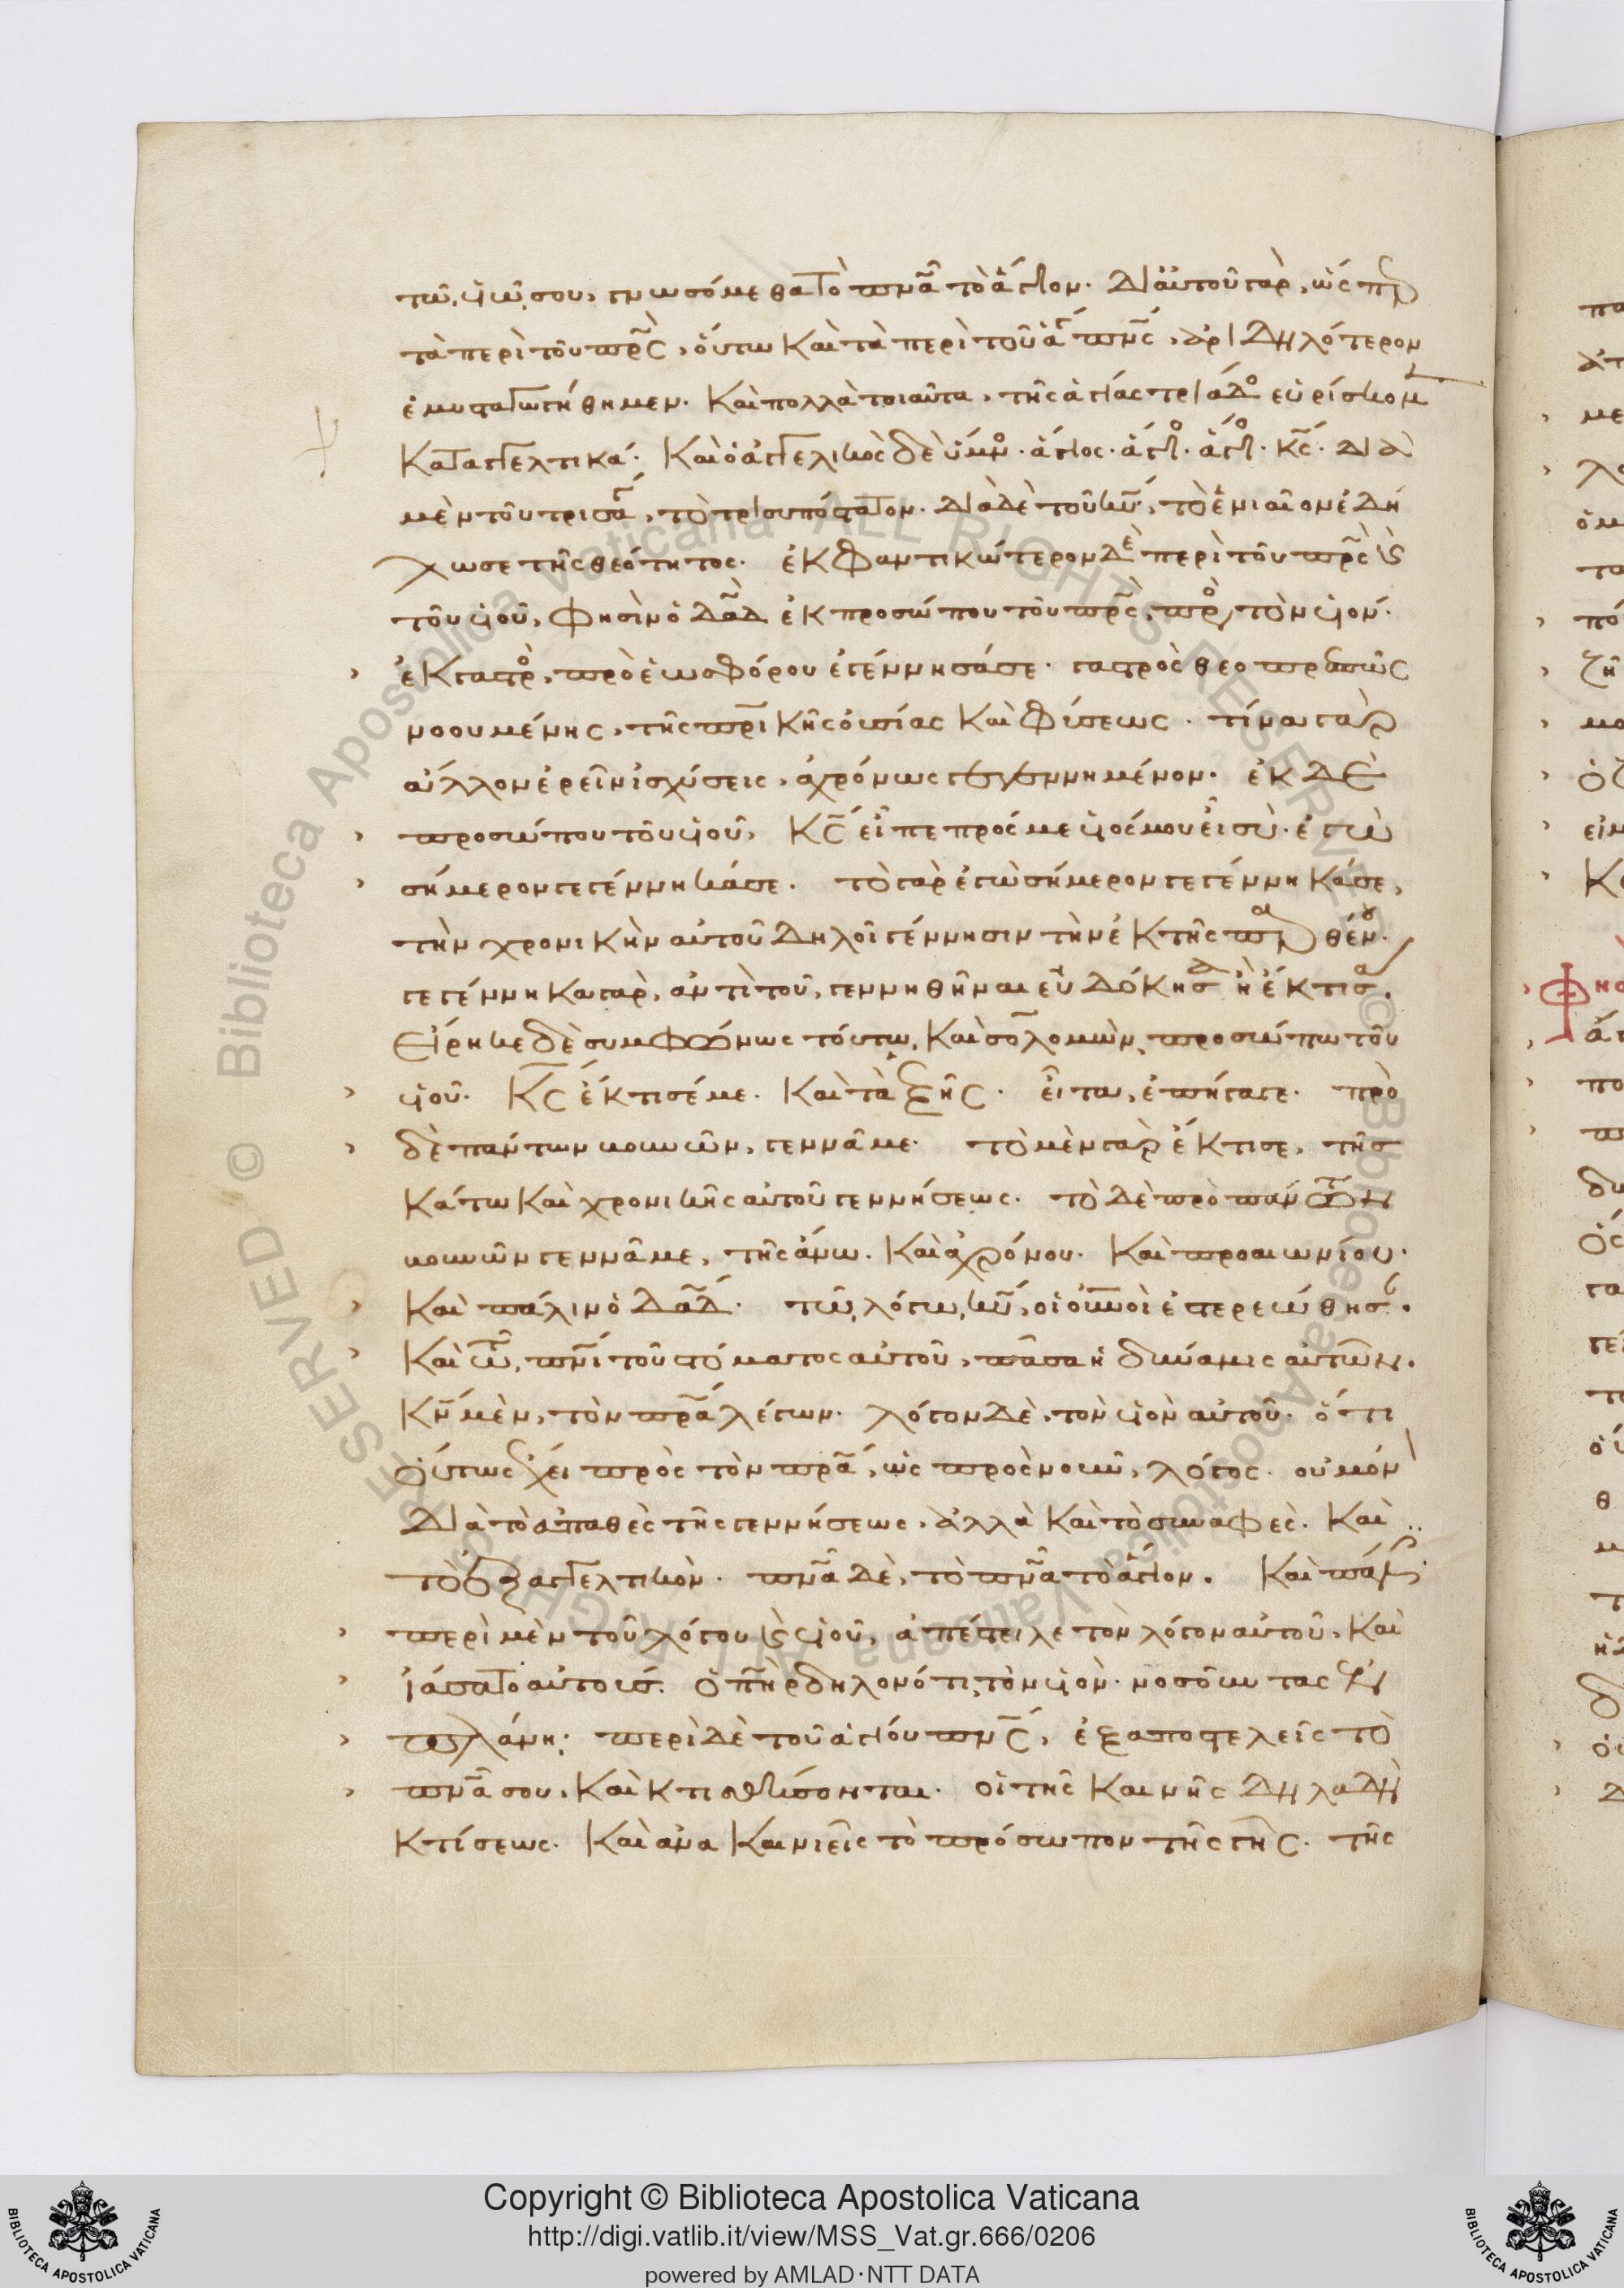 τῶ υἱῶ σου, γνωσόμεθα τὸ πνᾶ τὸ ἅγιον. δι αὐτοῦ γὰρ, ὥσπερ
τὰ περὶ τοῦ πρς, οὕτω καὶ τὰ περὶ τοῦ ἁγ πνς, ἀριδηλότερον
ἐμυσταγωγήθημεν. καὶ πολλὰ τοιαῦτα, τῆς ἁγίας τριάδο εὑρίσκομ
καταγγελτικά. καὶ ὁ ἀγγελικὸς δὲ ὕμνο. ἅγιος. ἅγιο. ἅγιο. κς. διὰ
μὲν τοῦ τρισαγ, τὸ τρισυπόστατον. διὰ δὲ τοῦ κυ, τὸ ἑνιαῖον ἐδή
λωσε τῆς θεότητος. ἐκφαντικώτερον δὲ περὶ τοῦ πρς καὶ
τοῦ υἱοῦ, φησὶν ὁ δαδ ἐκ προσώπου τοῦ πρς, προ τὸν υἱόν.
ἐκ γαστρο, πρὸ ἑωσφόρου ἐγέννησά σε. γαστρὸς θεοπρεπῶς
νοουμένης, τῆς πρικῆς οὐσίας καὶ φύσεως. τίνα γὰρ
ἄλλον ἐρεῖν ἰσχύσεις, ἀχρόνως γεγεννημένον. ἐκ δὲ
προσώπου τοῦ υἱοῦ, κς εἶπε πρός με υἱός μου εἶ σὺ. ἐγὼ
σήμερον γεγέννηκά σε. τὸ γὰρ ἐγὼ σήμερον γεγέννηκά σε,
τὴν χρονικὴν αὐτοῦ δηλοῖ γέννησιν τὴν ἐκ τῆς παρθένου.
γεγέννηκα γὰρ, ἀντὶ τοῦ, γεννηθῆναι εὐδόκησα ἢ ἔκτισα.
εἴρηκε δὲ συμφώνως τούτω, καὶ σολομὼν, προσώπω τοῦ
υἱοῦ. κς ἔκτισέ με. καὶ τὰ ἑξῆς. εἶτα, ἐπήγαγε. πρὸ
δὲ πάντων βουνῶν, γεννᾶ με. τὸ μὲν γὰρ ἔκτισε, τῆς
κάτω καὶ χρονικῆς αὐτοῦ γεννήσεως. τὸ δὲ πρὸ πάντων
βουνῶν γεννᾶ με, τῆς ἄνω. καὶ ἀχρόνου. καὶ προαιωνίου.
καὶ πάλιν ὁ δαδ. τῶ λόγω κυ, οἱ οὐνοὶ ἐστερεώθησαν.
καὶ τῶ πνι τοῦ στόματος αὐτοῦ, πᾶσα ἡ δύναμις αὐτῶν.
κν μὲν, τὸν πρα λέγων. λόγον δὲ, τὸν υἱὸν αὐτοῦ. ὅτι
οὕτως ἔχει πρὸς τὸν πρα, ὡς πρὸς νοῦν, λόγος. οὐ μόν
διὰ τὸ ἀπαθὲς τῆς γεννήσεως, ἀλλὰ καὶ τὸ συναφὲς. καὶ
τὸ ἐξαγγελτικόν. πνα δὲ, τὸ πνα τὸ ἅγιον. καὶ πάλιν
περὶ μὲν τοῦ λόγου καὶ υἱοῦ, ἀπέστειλε τὸν λόγον αὐτοῦ, καὶ
ἰάσατο αὐτούς. ὁ πηρ δηλονότι, τὸν υἱὸν. νοσοῦντας ἐν
πλάνη. περὶ δὲ τοῦ ἁγίου πνς, ἐξαποστελεῖς τὸ
πνα σου, καὶ κτισθήσονται. οἱ τῆς καινῆς δηλαδὴ
κτίσεως. καὶ ἀνακαινιεῖς τὸ πρόσωπον τῆς γῆς. τῆς
Copyright © Biblioteca Apostolica Vaticana
http://digi.vatlib.it/view/MSS_Vat.gr.666/0206
powered by AMLAD·NTT DATA